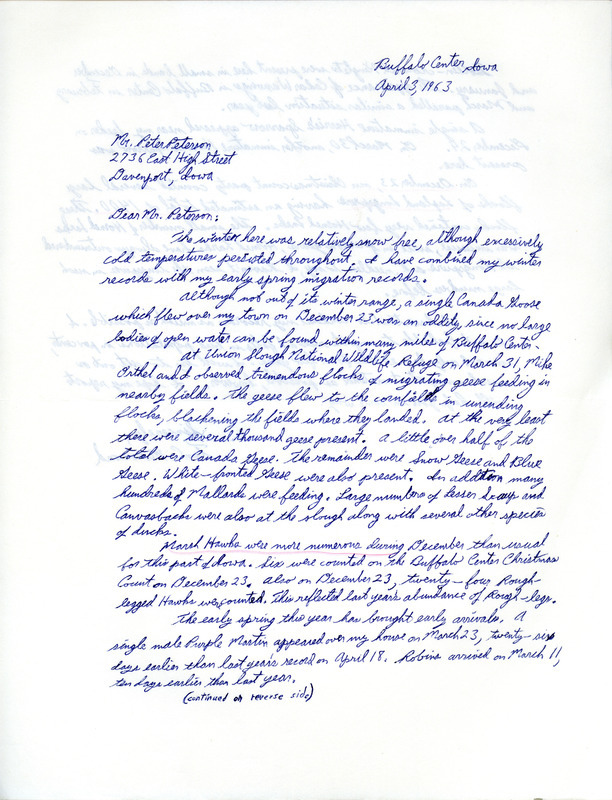 Buffalo Center, Iowa
April 3, 1963
Mr. Peter Peterson
2736 East High Street
Davenport, Iowa
Dear Mr. Peterson:
The winter here was relatively snow free, although excessively
cold temperatures persisted throughout. I have combined my winter
records with my early spring migration records.
Although not out of its winter range, a single Canada Goose
which flew over my town on December 23 was an oddity since no large
bodies of open water can be found within many miles of Buffalo Center.
At Union Slough National Wildlife Refuge on March 31, Mike
and I observed tremendous flocks of migrating geese feeding in
nearby fields. The geese flew to the cornfields in unending
flocks, blackening the fields where they landed. At the very least
there were several thousand geese present. A little over half of the
total were Canada Geese. The remainder were Snow Geese and Blue
Geese. White-fronted Geese were also present. In addition many
hundreds of Mallards were feeding. Large numbers of Lesser Scaup and
Canvasbacks were also at the slough along with several other species
of ducks.
Marsh Hawks were more numerous during December than usual
for this part of Iowa. Six were counted on the Buffalo Center Christmas
Count on December 23. Also on December 23, twenty-four Rough-
legged Hawks were counted. This reflected last year's abundance of Rough-legs.
The early spring this year has brought early arrivals. A
single male Purple Martin appeared over my house on March 23, twenty-six
days earlier than last year's record on April 18. Robins arrived on March 11,
ten days earlier than last year.
(continued on reverse side)